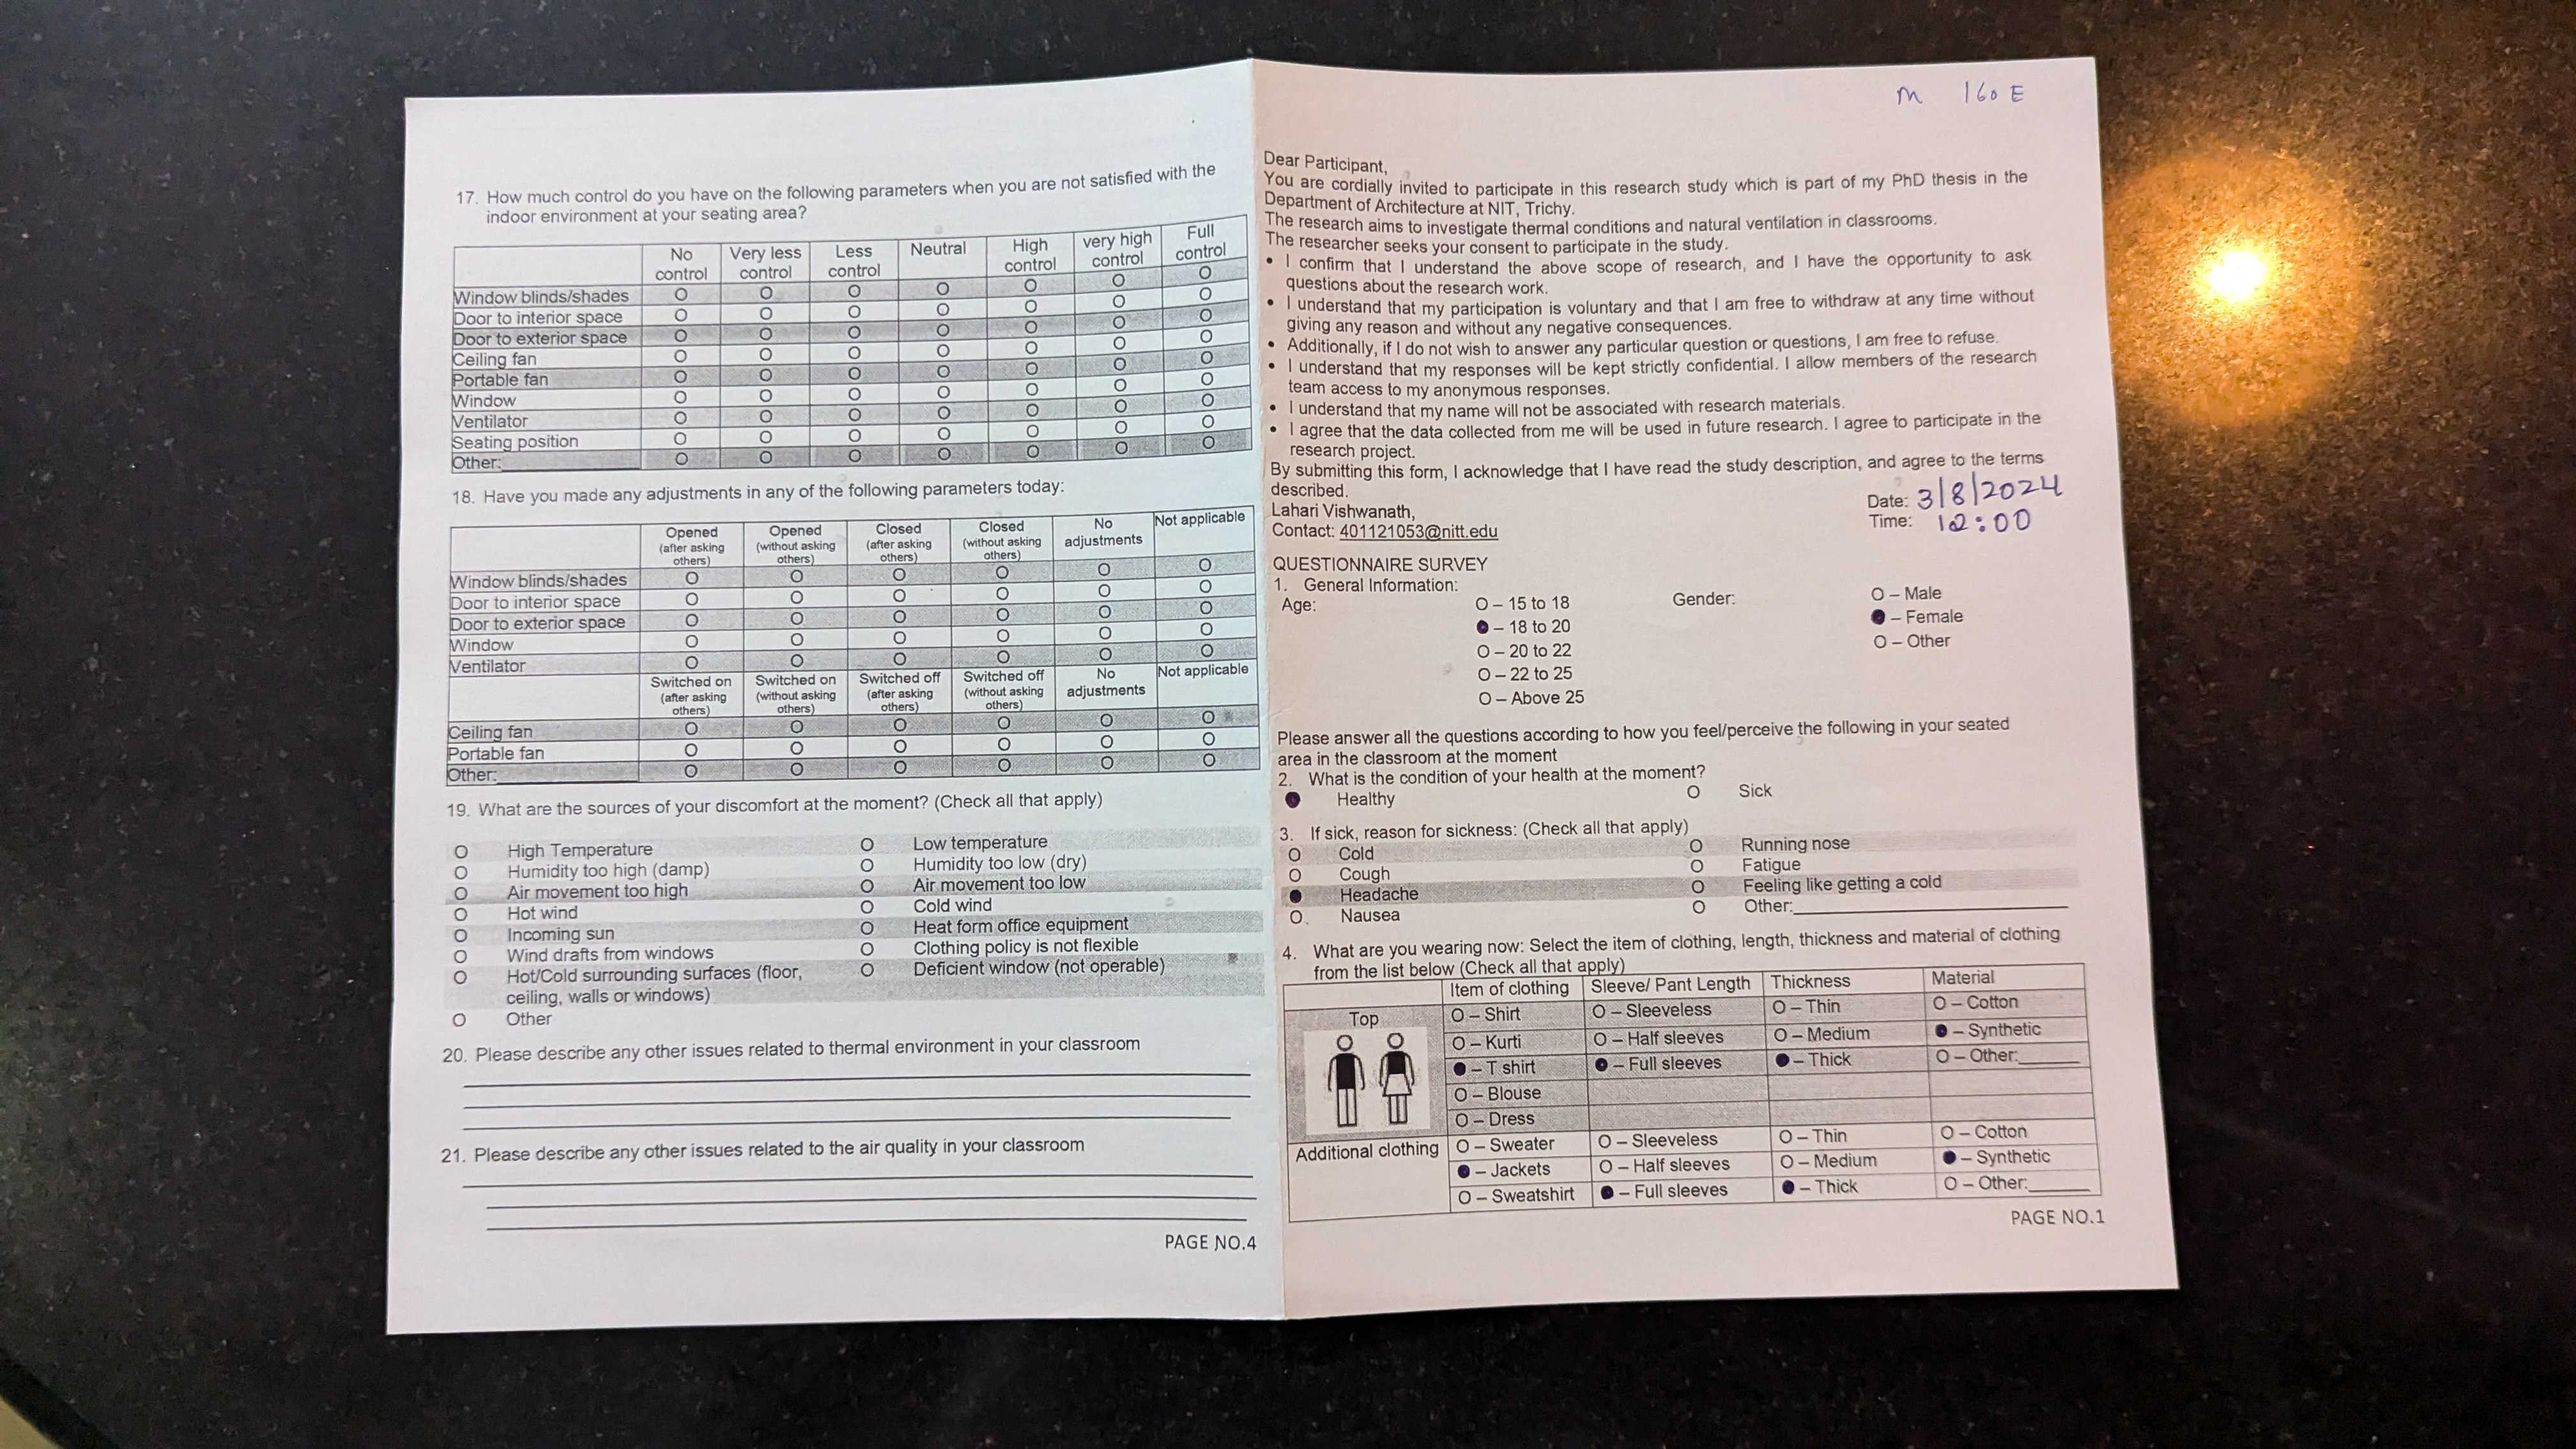 17. How much control do you have on the following parameters when you are not satisfied with the
indoor environment at your seating area?
No control Very less control Less control Neutral High control very high control Full control
Window blinds/shades O O O O O O O
Door to interior space O O O O O O O
Door to exterior space O O O O O O O
Ceiling fan O O O O O O O
Portable fan O O O O O O O
Window O O O O O O O
Ventilator O O O O O O O
Seating position O O O O O O O
Other: O O O O O O O
18. Have you made any adjustments in any of the following parameters today:
Opened (after asking others) Opened (without asking others) Closed (after asking others) Closed (without asking others) No adjustments Not applicable
Window blinds/shades O O O O O O
Door to interior space O O O O O O
Door to exterior space O O O O O O
Window O O O O O O
Ventilator O O O O O O
Switched on (after asking others) Switched on (without asking others) Switched off (after asking others) Switched off (without asking others) No adjustments Not applicable
Ceiling fan O O O O O O
Portable fan O O O O O O
Other: O O O O O O
19. What are the sources of your discomfort at the moment? (Check all that apply)
O High Temperature O Low temperature
O Humidity too high (damp) O Humidity too low (dry)
O Air movement too high O Air movement too low
O Hot wind O Cold wind
O Incoming sun O Heat form office equipment
O Wind drafts from windows O Clothing policy is not flexible
O Hot/Cold surrounding surfaces (floor, O Deficient window (not operable)
ceiling, walls or windows)
O Other
20. Please describe any other issues related to thermal environment in your classroom
21. Please describe any other issues related to the air quality in your classroom
PAGE NO.4
M 160 E
Dear Participant,
You are cordially invited to participate in this research study which is part of my PhD thesis in the
Department of Architecture at NIT, Trichy.
The research aims to investigate thermal conditions and natural ventilation in classrooms.
The researcher seeks your consent to participate in the study.
• I confirm that I understand the above scope of research, and I have the opportunity to ask
questions about the research work.
• I understand that my participation is voluntary and that I am free to withdraw at any time without
giving any reason and without any negative consequences.
• Additionally, if I do not wish to answer any particular question or questions, I am free to refuse.
• I understand that my responses will be kept strictly confidential. I allow members of the research
team access to my anonymous responses.
• I understand that my name will not be associated with research materials.
• I agree that the data collected from me will be used in future research. I agree to participate in the
research project.
By submitting this form, I acknowledge that I have read the study description, and agree to the terms
described.
Lahari Vishwanath, Date: 3/8/2024
Contact: 401121053@nitt.edu Time: 12:00
QUESTIONNAIRE SURVEY
1. General Information:
Age: O – 15 to 18 Gender: O – Male
● – 18 to 20 ● – Female
O – 20 to 22 O – Other
O – 22 to 25
O – Above 25
Please answer all the questions according to how you feel/perceive the following in your seated
area in the classroom at the moment
2. What is the condition of your health at the moment?
● Healthy O Sick
3. If sick, reason for sickness: (Check all that apply)
O Cold O Running nose
O Cough O Fatigue
● Headache O Feeling like getting a cold
O Nausea O Other:
4. What are you wearing now: Select the item of clothing, length, thickness and material of clothing
from the list below (Check all that apply)
Item of clothing Sleeve/ Pant Length Thickness Material
Top O – Shirt O – Sleeveless O – Thin O – Cotton
O – Kurti O – Half sleeves O – Medium ● – Synthetic
● – T shirt ● – Full sleeves ● – Thick O – Other:
O – Blouse
O – Dress
Additional clothing O – Sweater O – Sleeveless O – Thin O – Cotton
● – Jackets O – Half sleeves O – Medium ● – Synthetic
O – Sweatshirt ● – Full sleeves ● – Thick O – Other:
PAGE NO.1